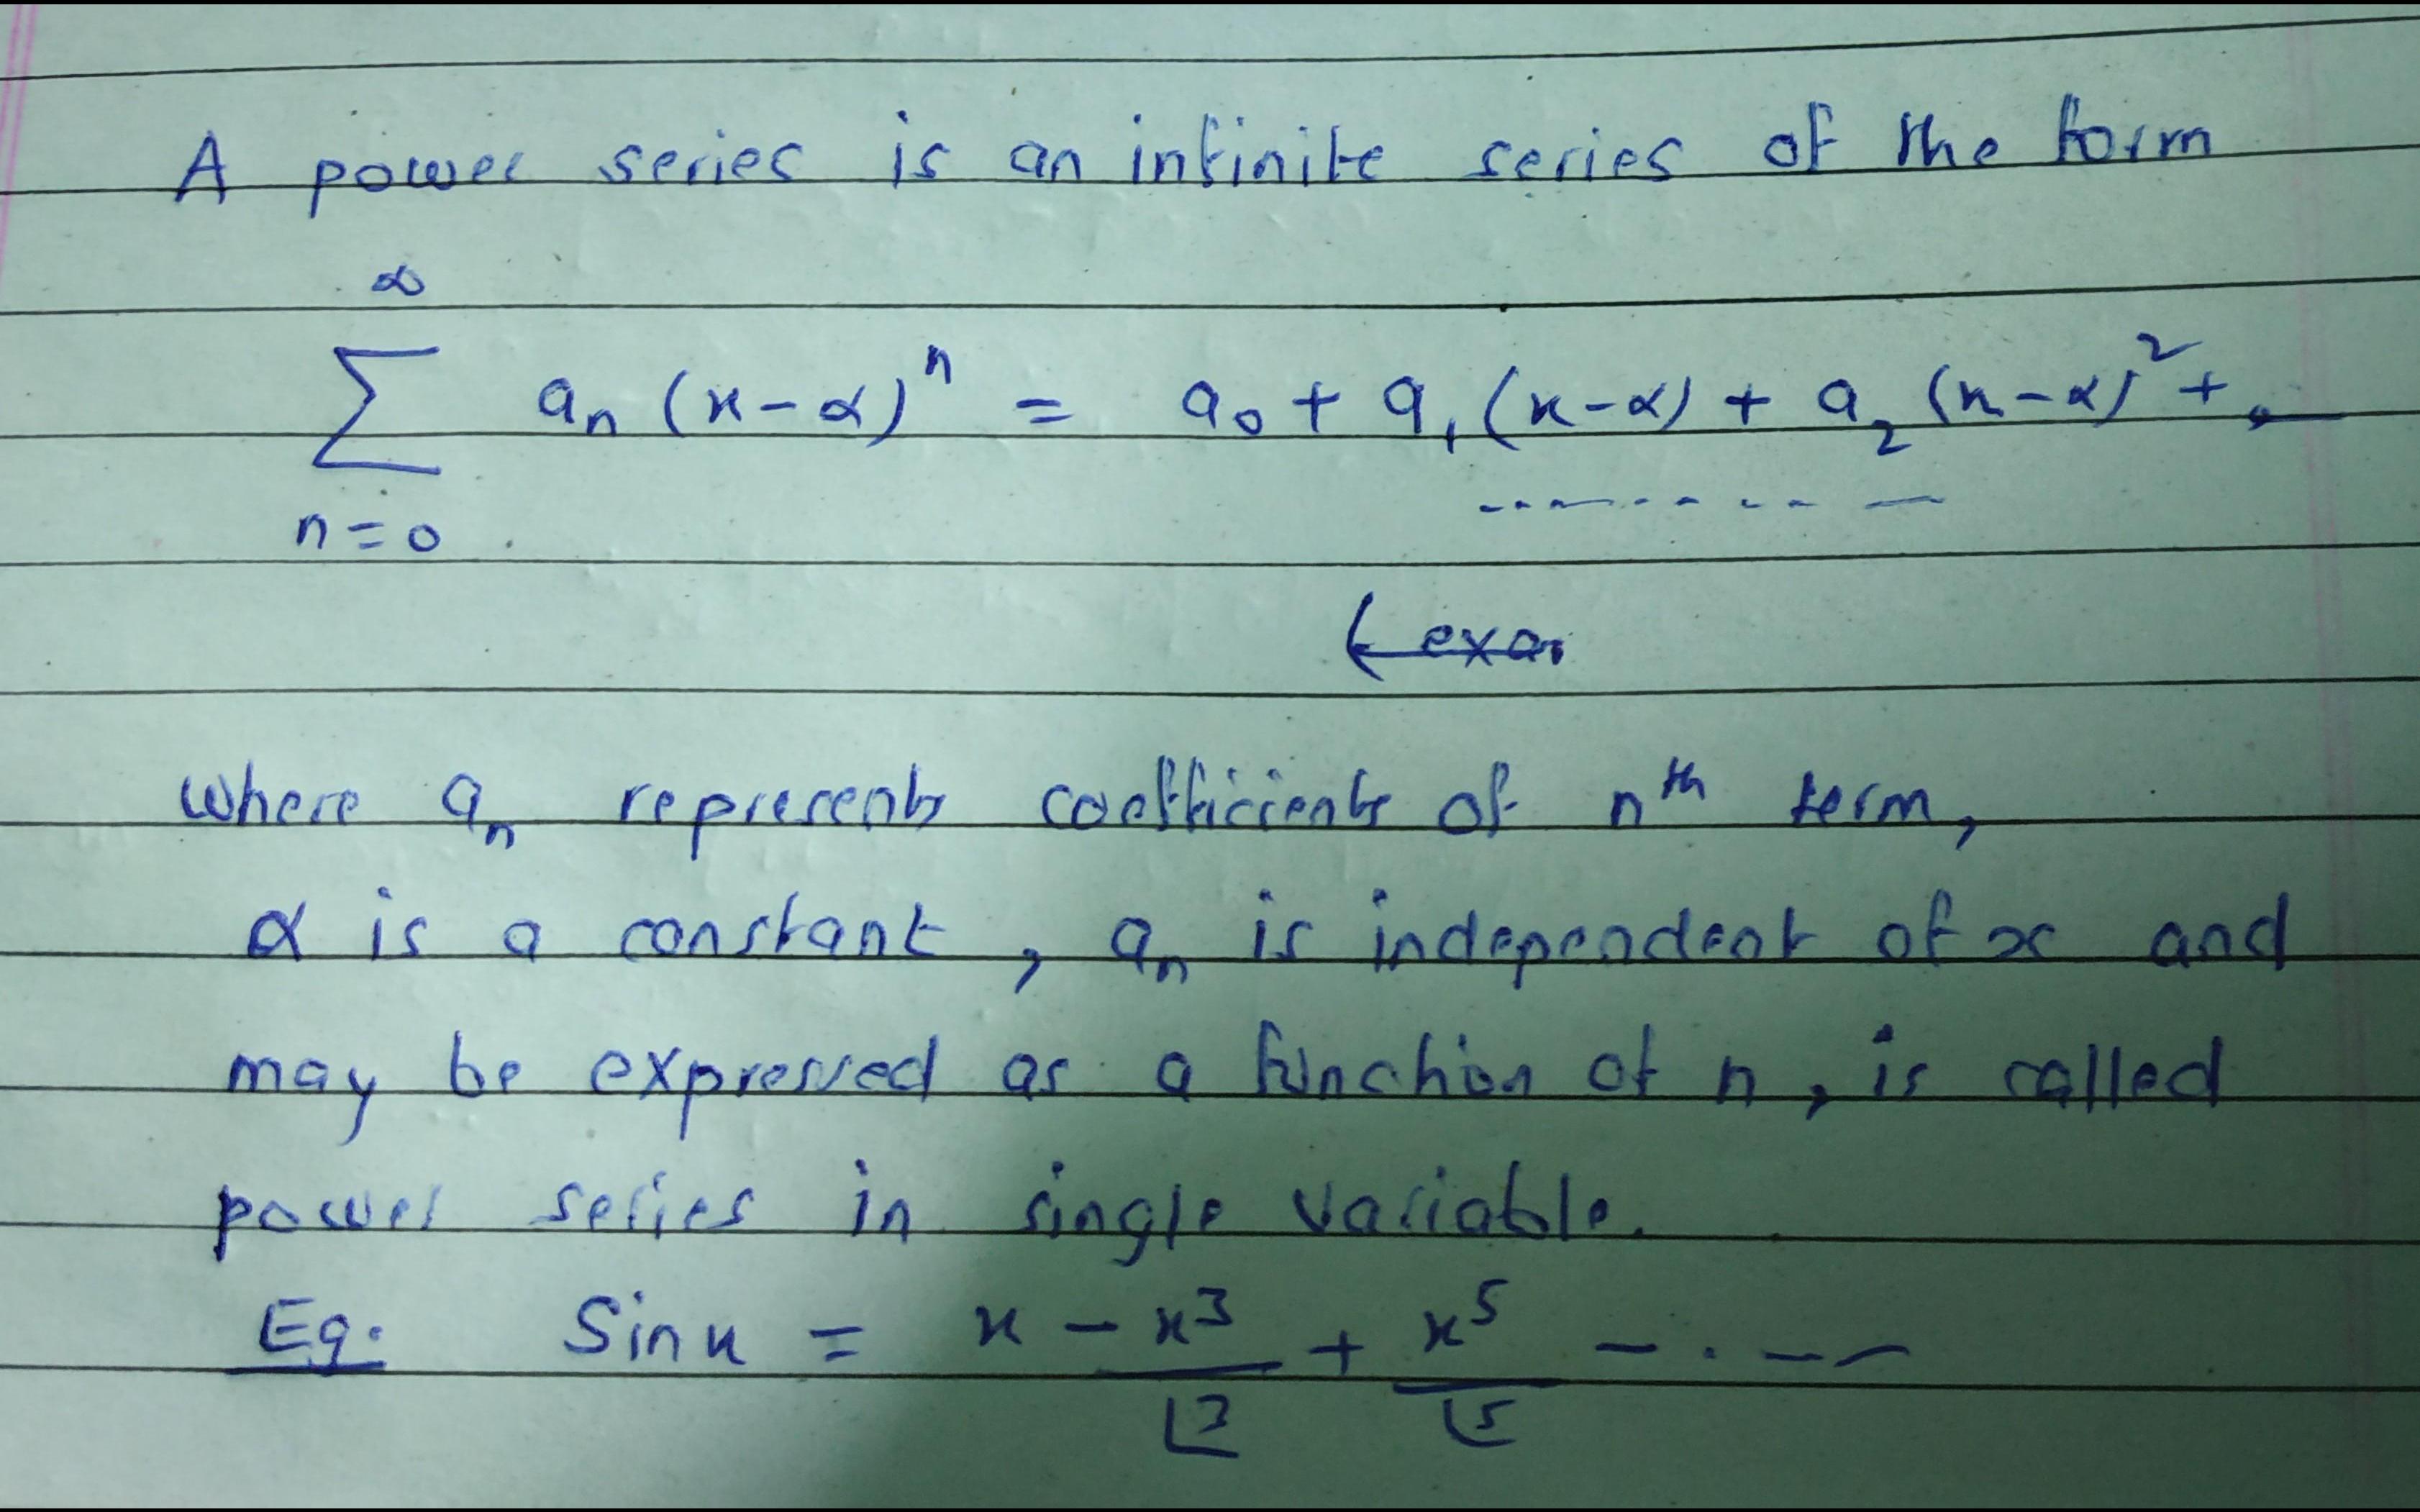 A power series is an infinite series of the form
∞
∑ aₙ (x-α)ⁿ = a₀ + a₁ (x-α) + a₂ (x-α)² + . —
n=0 - - - - - - - -
(exa
where aₙ represents coefficients of nᵗʰ term,
α is a constant, aₙ is independent of x and
may be expressed as a function of n, is called
power series in single variable.
Eg. Sin x = x - x³/⌊3 + x⁵/⌊5 - . - -